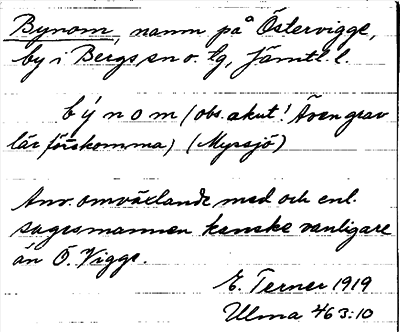 Bynom, namn på Östervigge,
by i Bergs sn o. tg, Jämtl. l.
by´nom (obs. akut! Även grav
lär förekomma) (Myssjö)
Anv. omväxlande med och enl.
sagesmannen kanske vanligare
än Ö. Vigge.
E. Terner 1919
Ulma 463:10